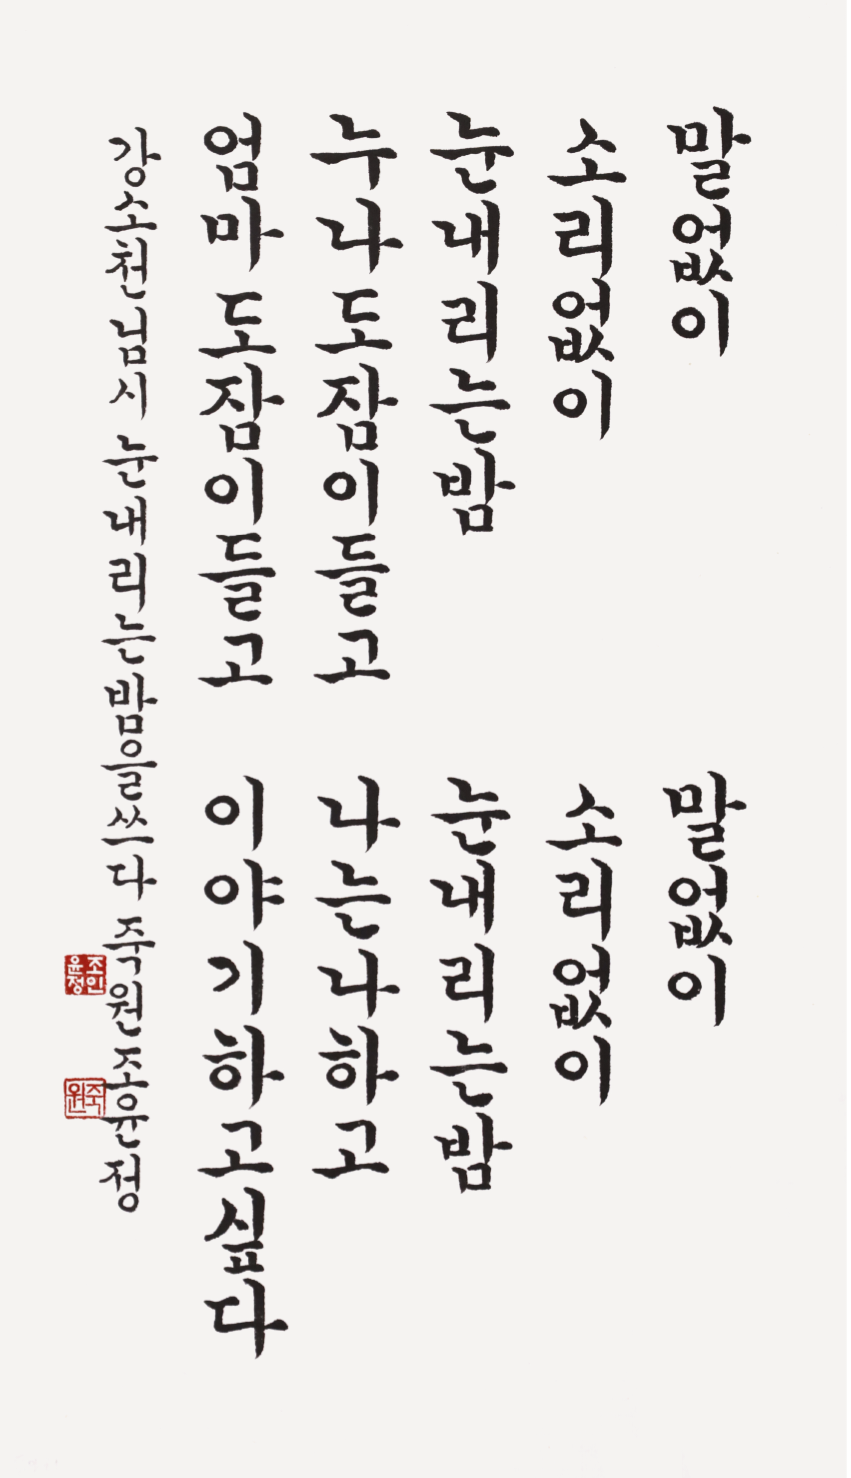 말없이
소리없이
눈내리는밤
누나도잠이들고
엄마도잠이들고
말없이
소리없이
눈내리는밤
나는나하고
이야기하고싶다
강소천님시 눈내리는밤을쓰다 죽원조윤정
조인윤정
죽원